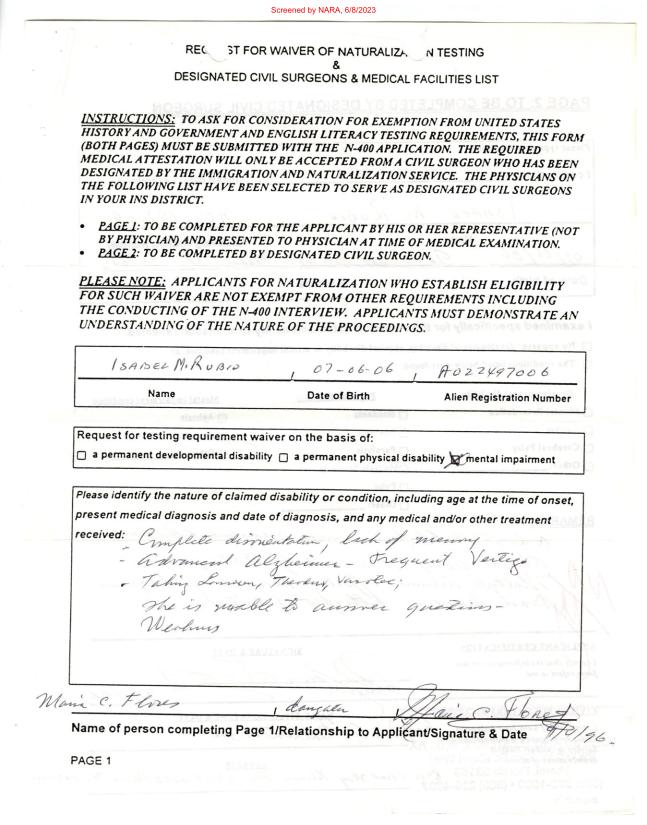 Screened by NARA, 6/8/2023
REQ ST FOR WAIVER OF NATURALIZA N TESTING
&
DESIGNATED CIVIL SURGEONS & MEDICAL FACILITIES LIST
INSTRUCTIONS: TO ASK FOR CONSIDERATION FOR EXEMPTION FROM UNITED STATES
HISTORY AND GOVERNMENT AND ENGLISH LITERACY TESTING REQUIREMENTS, THIS FORM
(BOTH PAGES) MUST BE SUBMITTED WITH THE N-400 APPLICATION. THE REQUIRED
MEDICAL ATTESTATION WILL ONLY BE ACCEPTED FROM A CIVIL SURGEON WHO HAS BEEN
DESIGNATED BY THE IMMIGRATION AND NATURALIZATION SERVICE. THE PHYSICIANS ON
THE FOLLOWING LIST HAVE BEEN SELECTED TO SERVE AS DESIGNATED CIVIL SURGEONS
IN YOUR INS DISTRICT.
• PAGE 1: TO BE COMPLETED FOR THE APPLICANT BY HIS OR HER REPRESENTATIVE (NOT
BY PHYSICIAN) AND PRESENTED TO PHYSICIAN AT TIME OF MEDICAL EXAMINATION.
• PAGE 2: TO BE COMPLETED BY DESIGNATED CIVIL SURGEON.
PLEASE NOTE: APPLICANTS FOR NATURALIZATION WHO ESTABLISH ELIGIBILITY
FOR SUCH WAIVER ARE NOT EXEMPT FROM OTHER REQUIREMENTS INCLUDING
THE CONDUCTING OF THE N-400 INTERVIEW. APPLICANTS MUST DEMONSTRATE AN
UNDERSTANDING OF THE NATURE OF THE PROCEEDINGS.
ISABEL M. RUBIO, 07-06-06, A022497006
Name Date of Birth Alien Registration Number
Request for testing requirement waiver on the basis of:
☐ a permanent developmental disability ☐ a permanent physical disability ☒ mental impairment
Please identify the nature of claimed disability or condition, including age at the time of onset,
present medical diagnosis and date of diagnosis, and any medical and/or other treatment
received: - Complete disorientation, lack of memory
- Advanced Alzheimer - Frequent Vertigo
- Taking
She is unable to answer questions -
Maria C. Flores, daughter, Maria C. Flores
Name of person completing Page 1/Relationship to Applicant/Signature & Date
PAGE 1